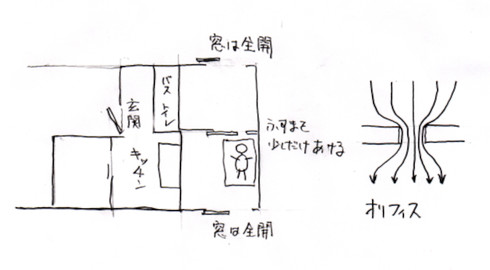 窓は全開
バス トイレ
玄関
ふすまを
少しだけあける
キッチン
オリフィス
窓は全開